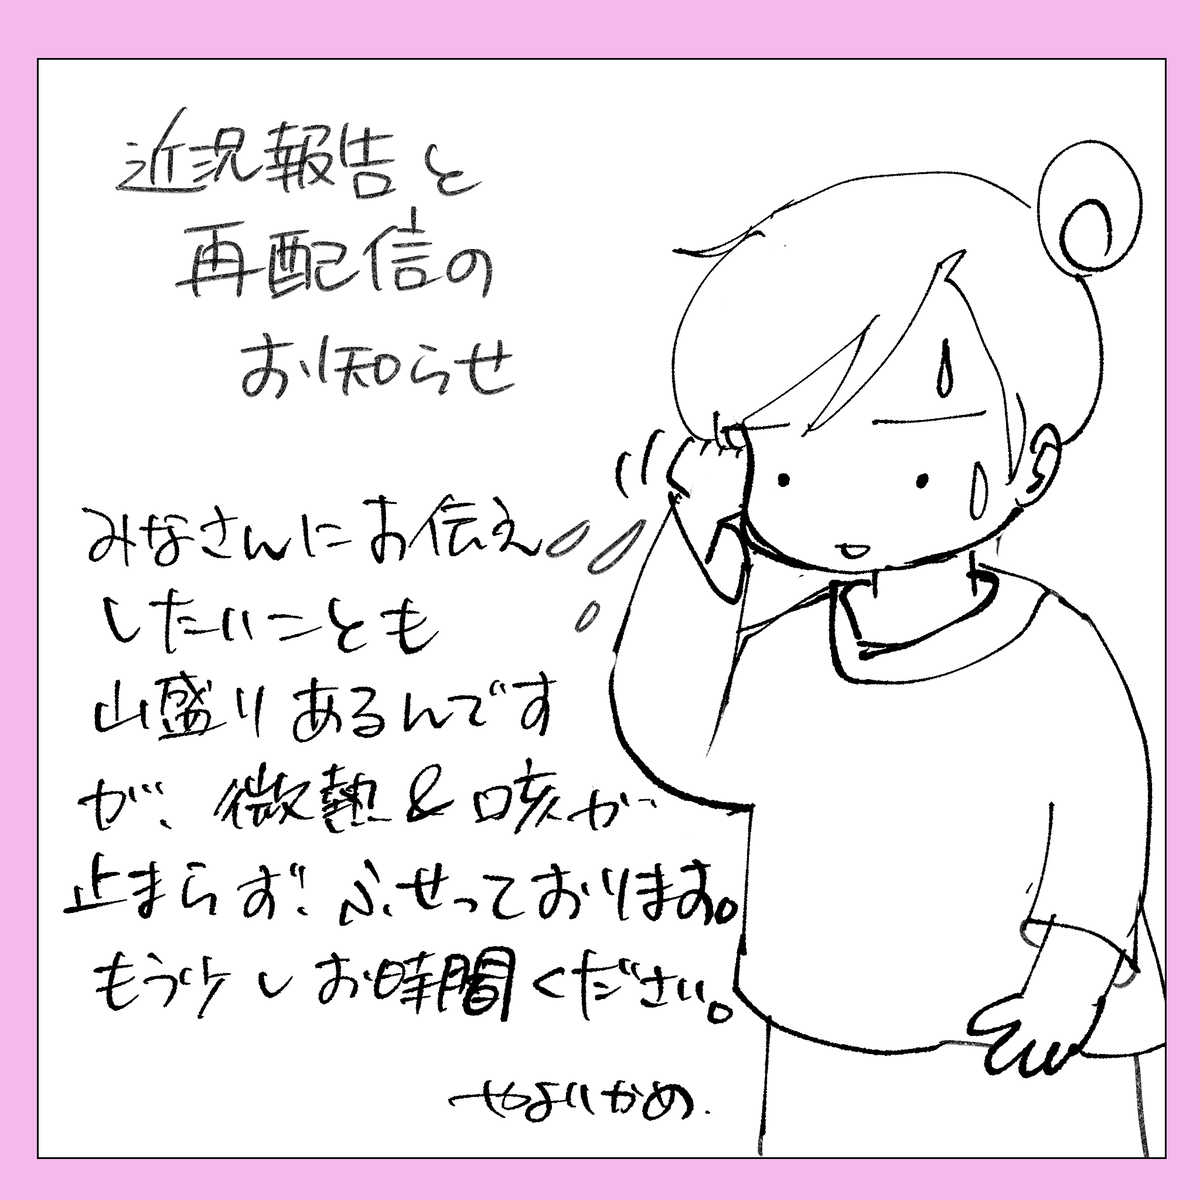 近況報告と
再配信の
お知らせ
みなさんにお伝え
したいことも
山盛りあるんです
が、微熱&咳が
止まらず!ふせっております。
もう少しお時間ください。
やよいかめ.